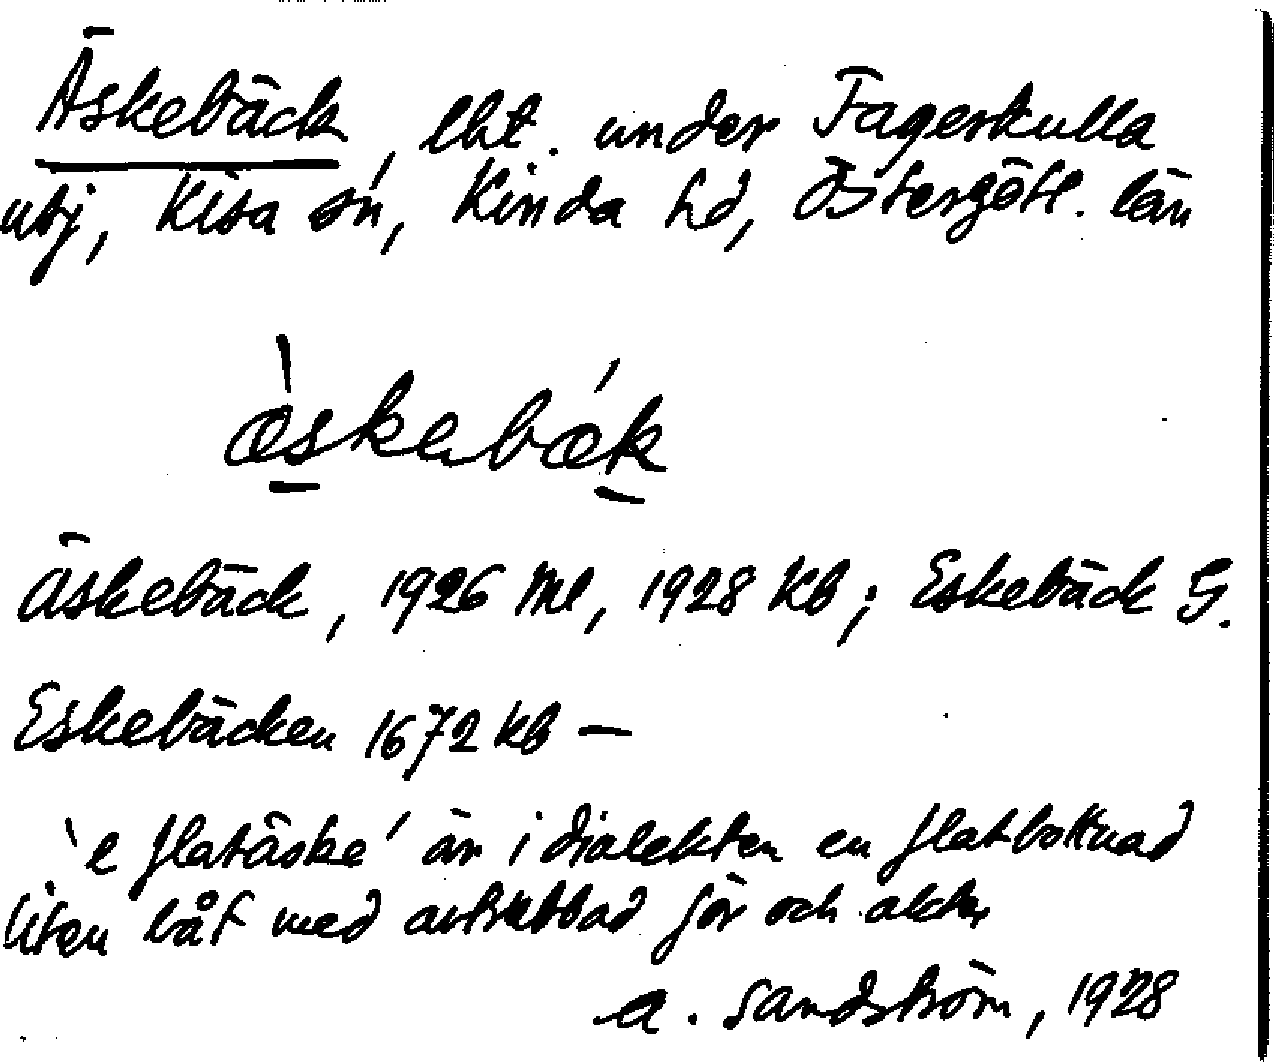 Äskebäck, lht. under Fagerkulla
utj, Kisa sn, Kinda hd, Östergötl. län
`æskebǽk
Äskebäck, 1926 Ml, 1928 KB; Eskebäck G.
Eskebäcken 1672 KB —
'e flatäske' är i dialekten en flatbottnad
liten båt med avstubbad för och akter
A. Sandström, 1928